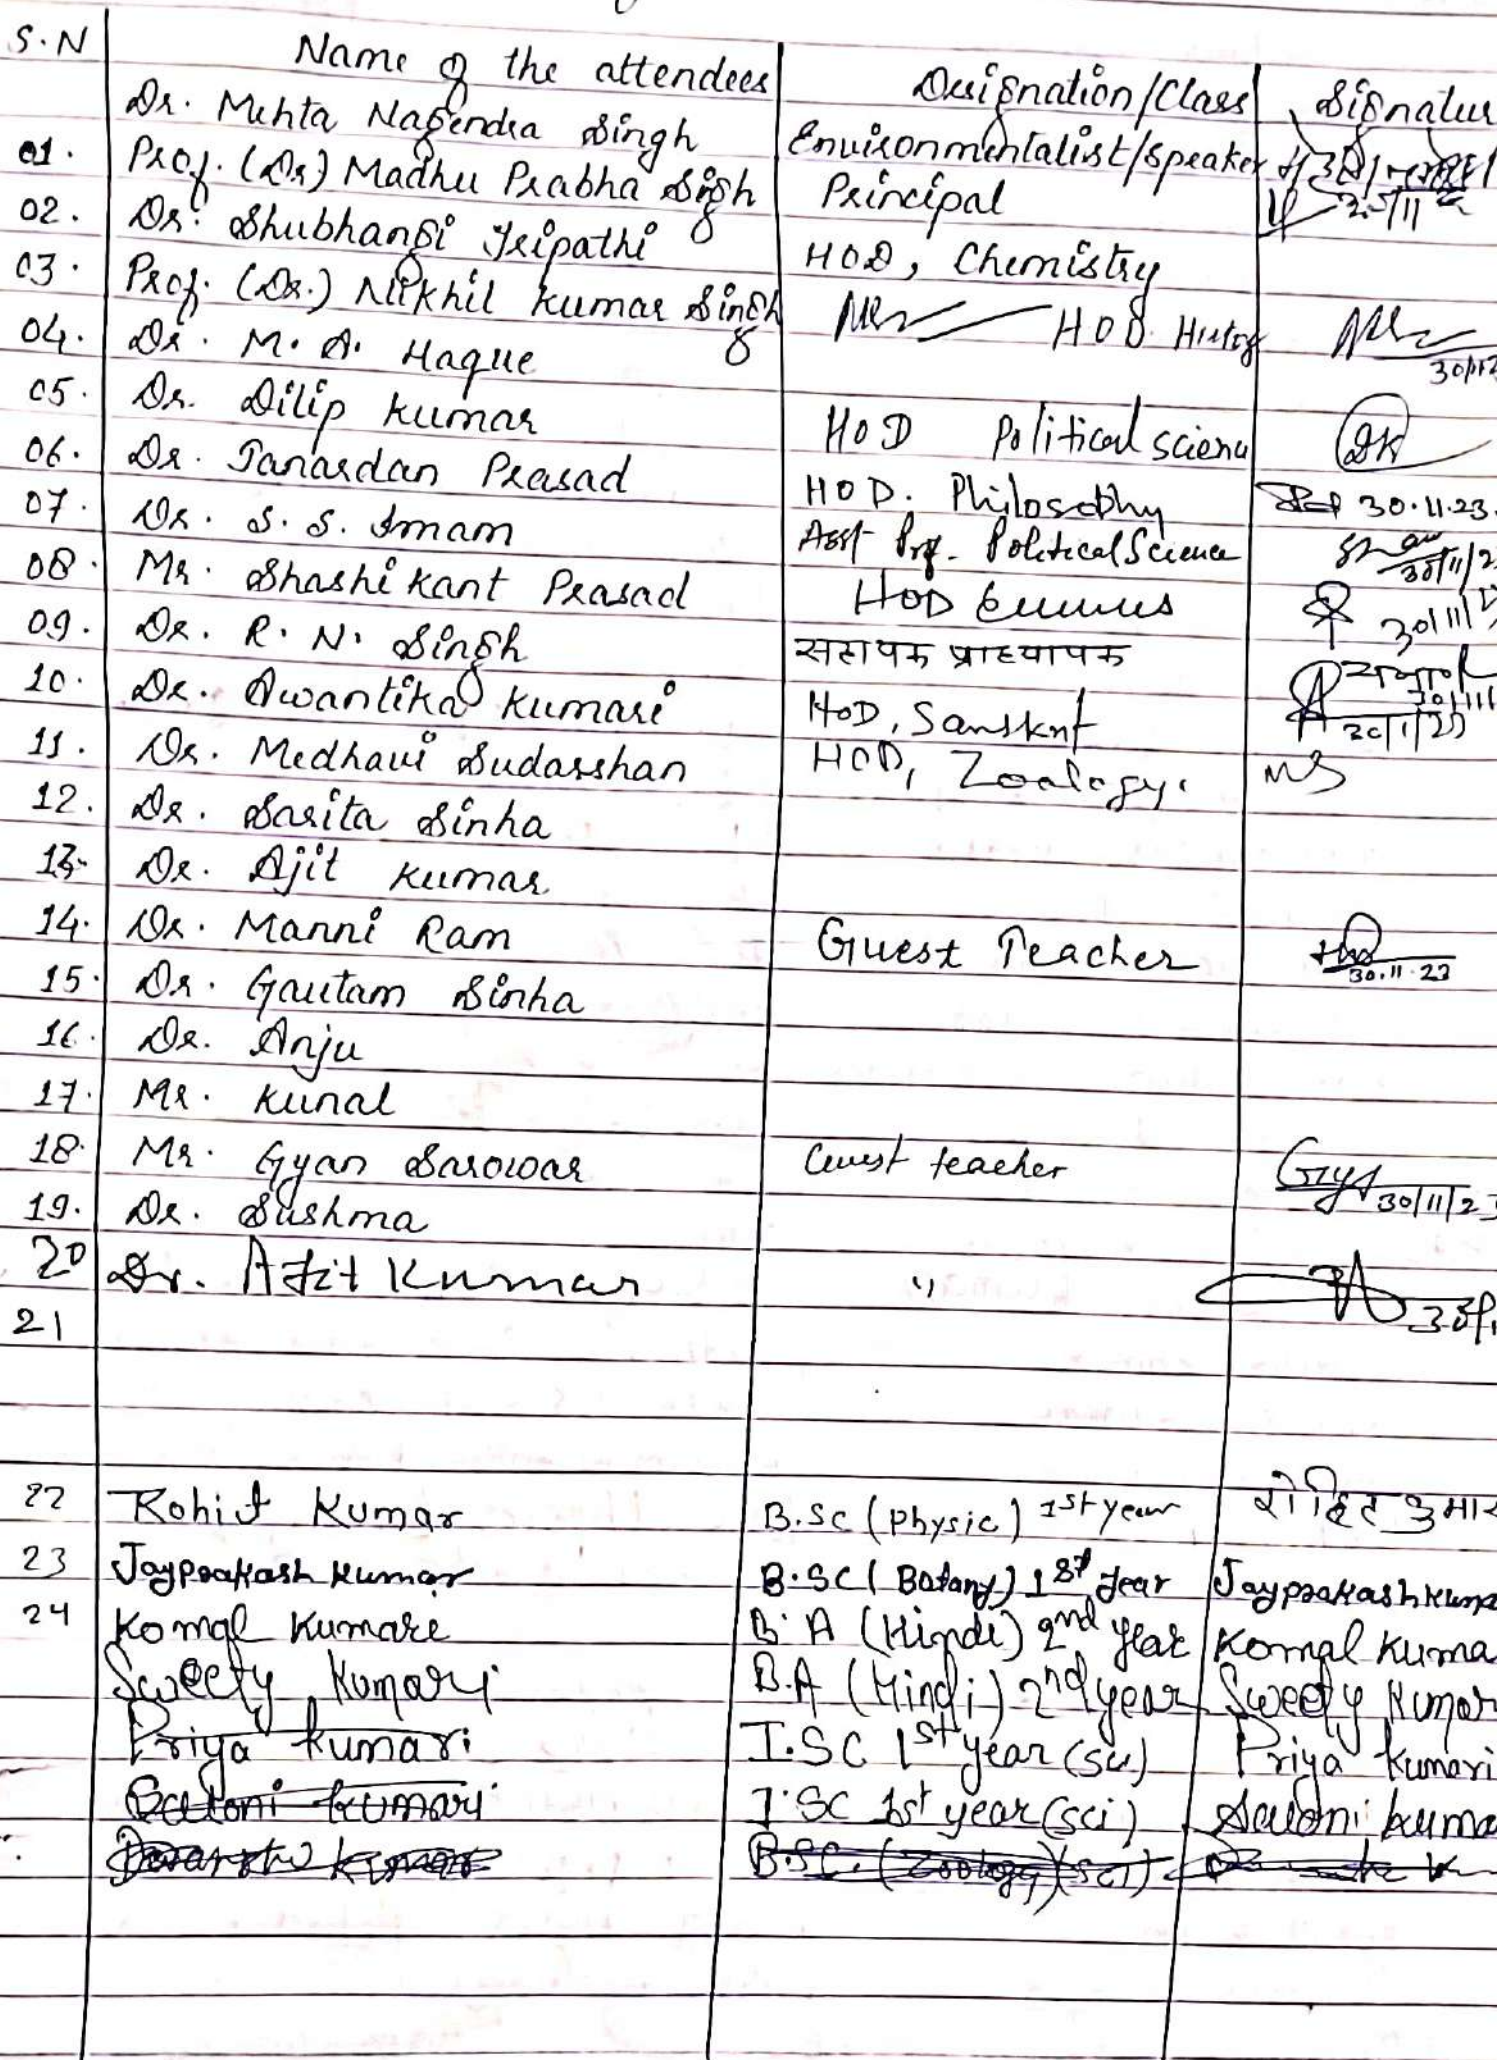 S.N Name of the attendees Designation/Class Signatur
Dr. Mehta Nagendra Singh Environmentalist/Speaker
01. Prof. (Dr) Madhu Prabha Singh Principal
02. Dr. Shubhangi Tripathi HOD, Chemistry
03. Prof. (Dr.) Nikhil Kumar Singh HOD. History
04. Dr. M. A. Haque
05. Dr. Dilip Kumar HOD Political Scienc DK
06. Dr. Janardan Prasad HOD. Philosophy 30.11.23.
07. Dr. S. S. Imam Asst Prof. Political Science 30/11/2
08. Mr. Shashi Kant Prasad HOD 30/11/
09. Dr. R. N. Singh सहायक प्राध्यापक
10. Dr. Awantika Kumari HOD, Sanskrit
11. Dr. Medhavi Sudarshan HOD, Zoology. MS
12. Dr. Sarita Sinha
13. Dr. Ajit Kumar
14. Dr. Manni Ram Guest Teacher 30.11.23
15. Dr. Gautam Sinha
16. Dr. Anju
17. Mr. Kunal
18. Mr. Gyan Sarowar Guest teacher 30/11/23
19. Dr. Sushma
20 Dr. Ajit Kumar "
21
22 Rohit Kumar B.Sc (Physic) 1st year रोहित कुमार
23 Jayprakash Kumar B.SC (Botany) 1st year Jayprakash Kuma
24 Komal Kumare B.A (Hindi) 2nd year Komal Kuma
Sweety Kumari B.A (Hindi) 2nd year Sweety Kumar
Priya Kumari I.SC 1st year (sci) Priya Kumari
Saloni Kumari I.SC 1st year (sci) Saloni Kuma
B.SC. (Zoology) (SCI)